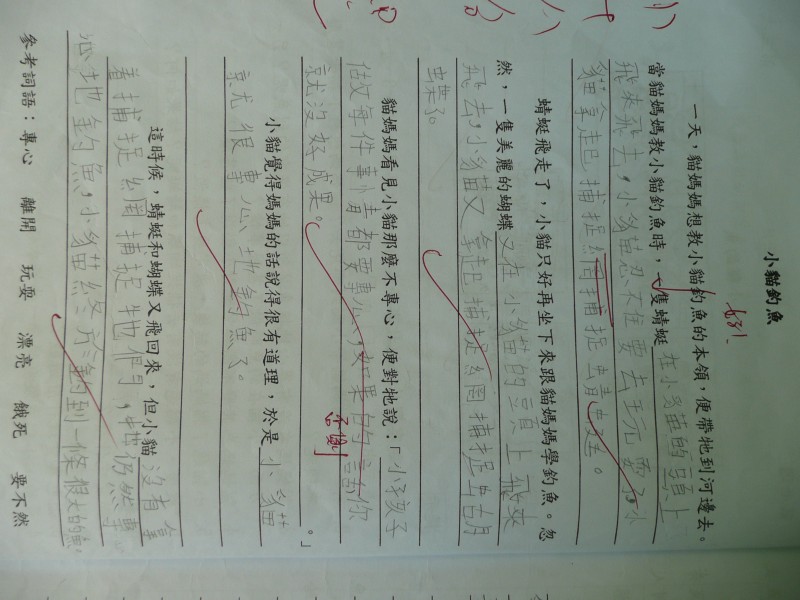 小貓釣魚
好！
一天，貓媽媽想教小貓釣魚的本領，便帶牠到河邊去。
當貓媽媽教小貓釣魚時，一隻蜻蜓在小貓的頭上
飛來飛去，小貓忍不住要去玩耍，小
貓拿起捕捉網捕捉蜻蜓。
蜻蜓飛走了，小貓只好再坐下來跟貓媽媽學釣魚。忽
然，一隻美麗的蝴蝶又在小貓的頭上飛來
飛去，小貓又拿起捕捉網捕捉蝴
蝶了。
貓媽媽看見小貓那麼不專心，便對牠說：「小孩子
做每件事情都要專心，如果的話你
否則
就沒好成果。」
小貓覺得媽媽的話說得很有道理，於是小貓
就很專心地釣魚了。
這時候，蜻蜓和蝴蝶又飛回來，但小貓沒有拿
着捕捉網捕捉牠們，仍然專
心地釣魚，小貓終於釣到一條很大的魚。
參考詞語：專心 離開 玩耍 漂亮 餓死 要不然